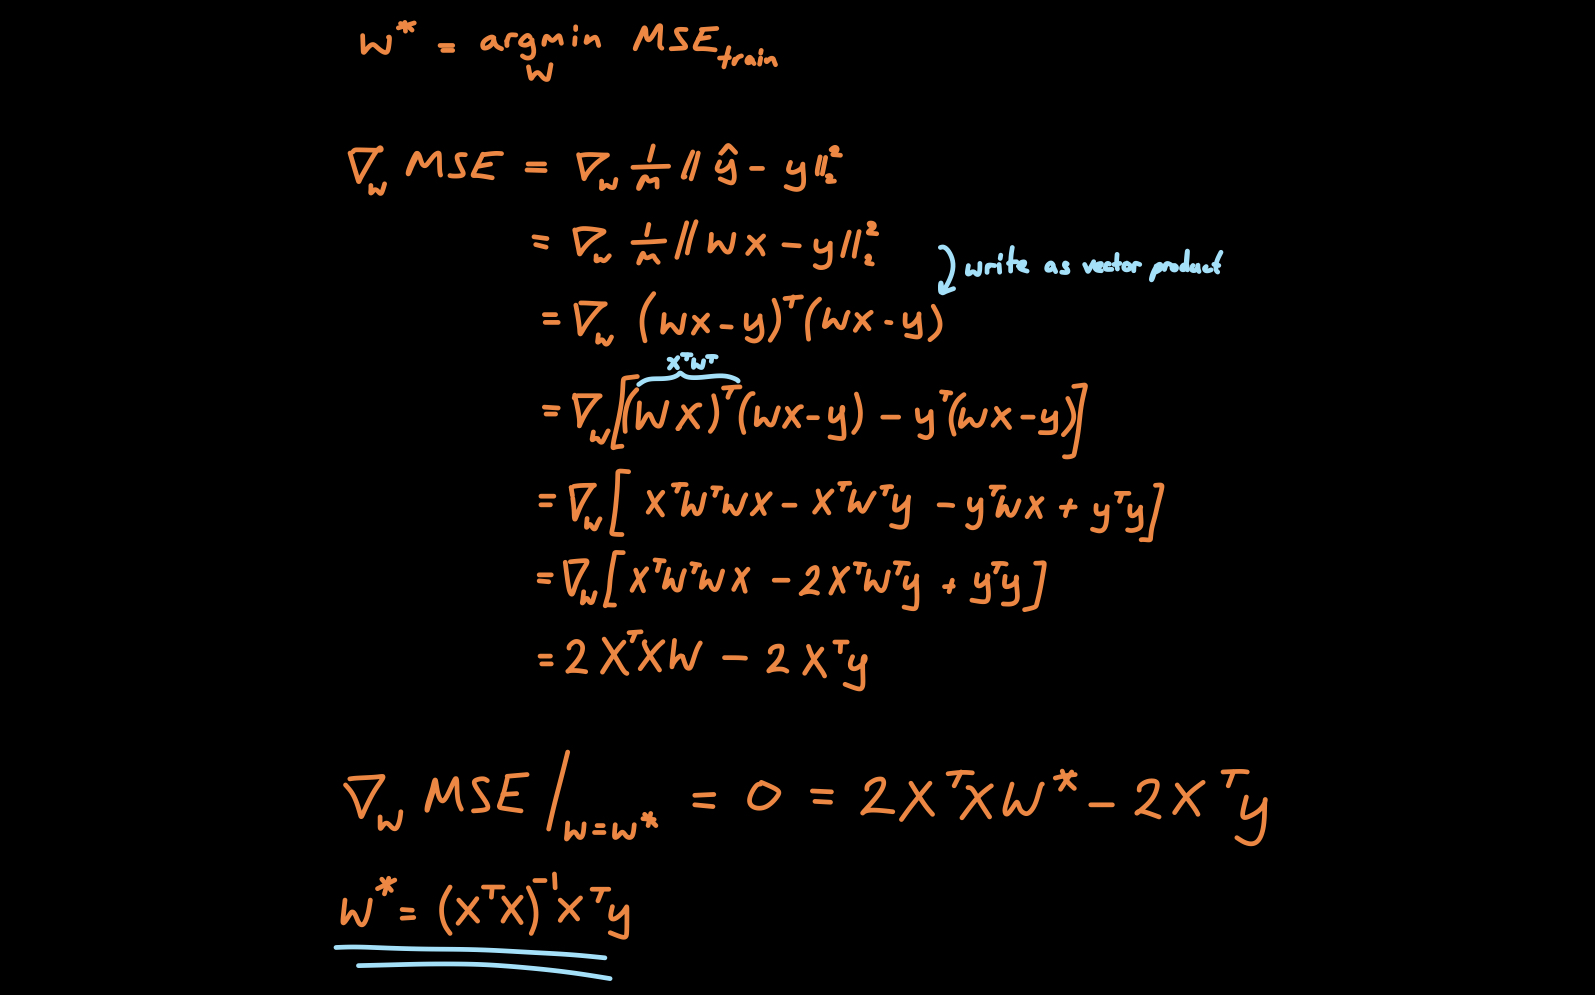 w* = argmin MSE_train
w
∇_w MSE = ∇_w 1/m ‖ŷ - y‖₂²
= ∇_w 1/m ‖wx - y‖₂²
write as vector product
= ∇_w (wx - y)ᵀ(wx - y)
xᵀwᵀ
= ∇_w [(wx)ᵀ(wx - y) - yᵀ(wx - y)]
= ∇_w [xᵀwᵀwx - xᵀwᵀy - yᵀwx + yᵀy]
= ∇_w [xᵀwᵀwx - 2xᵀwᵀy + yᵀy]
= 2XᵀXw - 2Xᵀy
∇_w MSE |_{w=w*} = 0 = 2XᵀXw* - 2Xᵀy
w* = (XᵀX)⁻¹Xᵀy